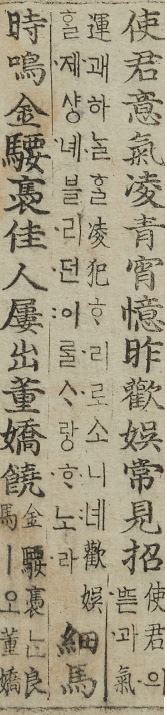 使君意氣凌青宵憶昨歡娛常見招
使君의
ᄠᅳᆮ과氣
運괘하ᄂᆞᆯᄒᆞᆯ凌犯ᄒᆞ리로소니녜歡娛
ᄒᆞᆯ제샹녜블리던이ᄅᆞᆯᄉᆞ랑ᄒᆞ노라
細馬
時鳴金騕褭佳人屢出董嬌饒
金騕褭ᄂᆞᆫ良
馬ㅣ오董嬌